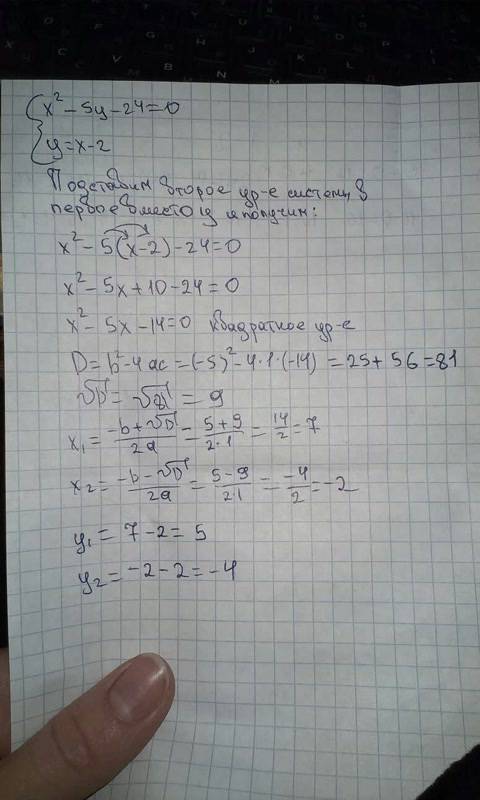 x² - 5y - 24 = 0
y = x - 2
Подставим второе ур-е системы в
первое вместо y и получим:
x² - 5(x - 2) - 24 = 0
x² - 5x + 10 - 24 = 0
x² - 5x - 14 = 0 квадратное ур-е
D = b² - 4ac = (-5)² - 4·1·(-14) = 25 + 56 = 81
√D = √81 = 9
x₁ = (-b + √D)/2a = (5 + 9)/2·1 = 14/2 = 7
x₂ = (-b - √D)/2a = (5 - 9)/2·1 = -4/2 = -2
y₁ = 7 - 2 = 5
y₂ = -2 - 2 = -4